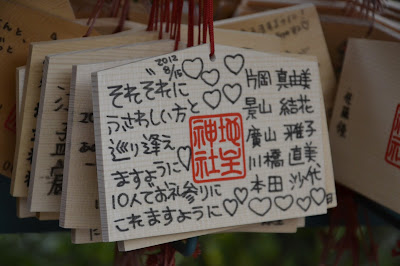 2012
8/15
それぞれに
ふさわしい方と
巡り逢え
ますように
10人でお礼参りに
これますように
地主
神社
片岡 真由美
景山 結花
廣山 雅子
川橋 直美
本田 沙代